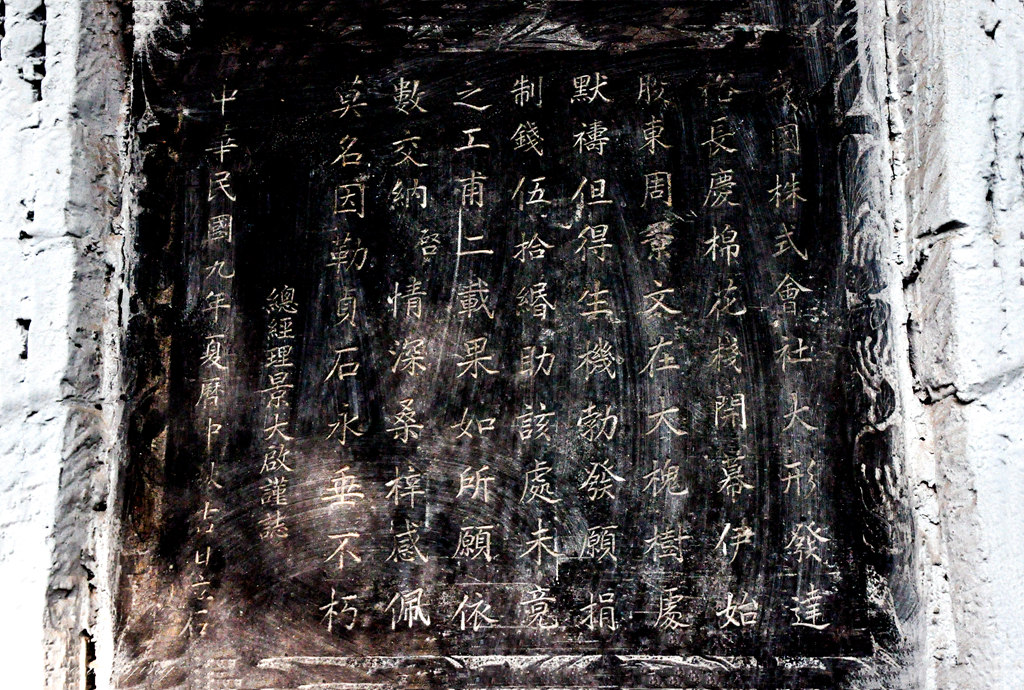 我國株式會社大形發達
裕長慶棉花棧開幕伊始
股東周景文在大槐樹處
默禱但得生機勃發願捐
制錢伍拾緡助該處未竟
之工甫二載果如所願依
數交納啓情深桑梓感佩
莫名因勒貞石永垂不朽
總經理景大啟謹誌
中華民國九年夏曆中秋